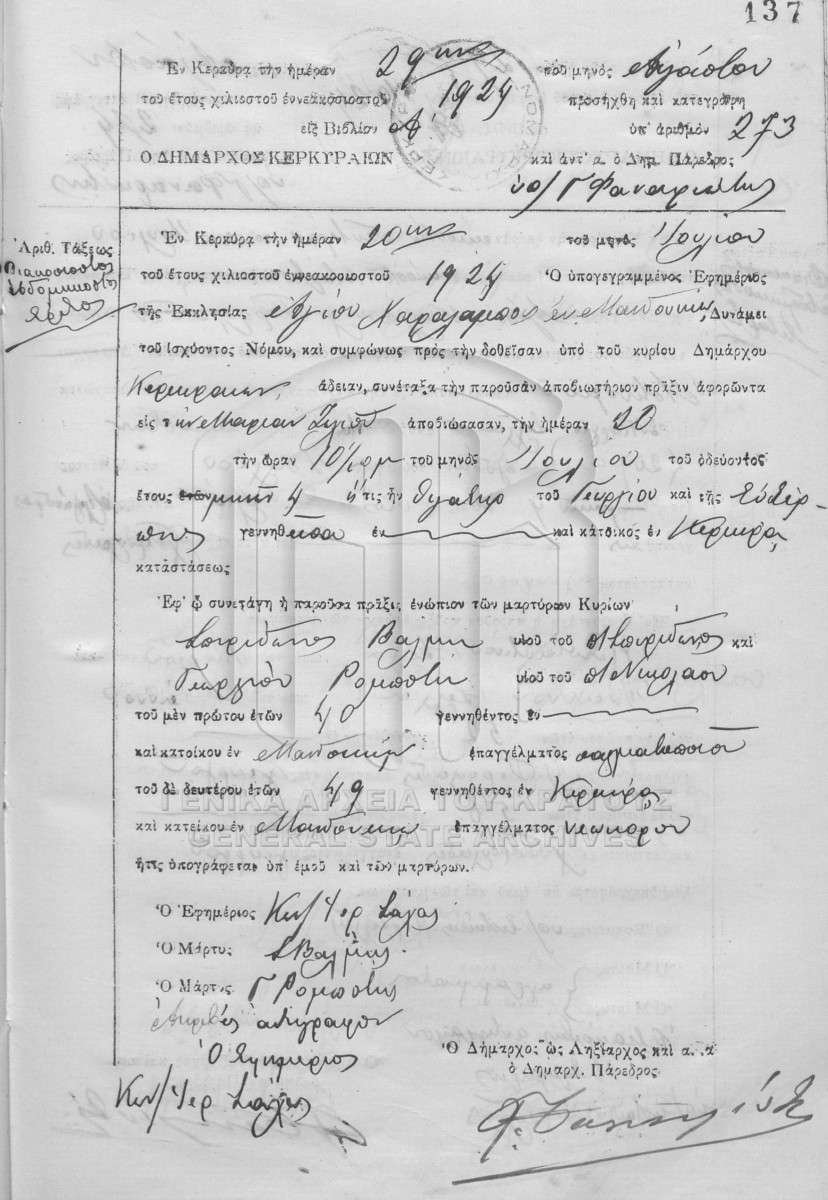 137
Ἐν Κερκύρᾳ τὴν ἡμέραν 29ην τοῦ μηνὸς Αὐγούστου
τοῦ ἔτους χιλιοστοῦ ἐννεακοσιοστοῦ 1924 προσήχθη καὶ κατεγράφη
εἰς Βιβλίον ὑπ' ἀριθμὸν 273
Ο ΔΗΜΑΡΧΟΣ ΚΕΡΚΥΡΑΙΩΝ καὶ ἀντ' α. ὁ Δημ. Πάρεδρος
Γ Φαναριώτης
Ἀριθ. Τάξεως
Διακοσιοστὸς
ἑβδομηκοστὸς
τρίτος
Ἐν Κερκύρᾳ τὴν ἡμέραν 20ην τοῦ μηνὸς Ἰουλίου
τοῦ ἔτους χιλιοστοῦ ἐννεακοσιοστοῦ 1924 Ὁ ὑπογεγραμμένος Ἐφημέριος
τῆς Ἐκκλησίας Ἁγίου Χαραλάμπους ἐν Μαντουκίῳ, Δυνάμει
τοῦ ἰσχύοντος Νόμου, καὶ συμφώνως πρὸς τὴν δοθεῖσαν ὑπὸ τοῦ κυρίου Δημάρχου
Κερκυραίων, ἄδειαν, συνέταξα τὴν παροῦσαν ἀποβιωτήριον πρᾶξιν ἀφορῶντα
εἰς τὴν Μαρίαν ἀποβιώσασαν, τὴν ἡμέραν 20
τὴν ὥραν 10 τοῦ μηνὸς Ἰουλίου τοῦ ὁδεύοντος
ἔτους ἐτῶν μηνῶν 4 ἥτις ἦν θυγάτηρ τοῦ Γεωργίου καὶ τῆς Εὐτέρ-
πης γεννηθεῖσα ἐν καὶ κάτοικος ἐν Κερκύρᾳ
καταστάσεως
Ἐφ' ᾧ συνετάγη ἡ παροῦσα πρᾶξις ἐνώπιον τῶν μαρτύρων Κυρίων
Σπυρίδωνος Βαλμῆ υἱοῦ τοῦ Σπυρίδωνος καὶ
Γεωργίου Ρομπότη υἱοῦ τοῦ Νικολάου
τοῦ μὲν πρώτου ἐτῶν 40 γεννηθέντος ἐν
καὶ κατοίκου ἐν Μαντουκίῳ ἐπαγγέλματος σαγματοποιοῦ
τοῦ δὲ δευτέρου ἐτῶν 49 γεννηθέντος ἐν Κερκύρᾳ
καὶ κατοίκου ἐν Μαντουκίῳ ἐπαγγέλματος νεωκόρου
ΓΕΝΙΚΑ ΑΡΧΕΙΑ ΤΟΥ ΚΡΑΤΟΥΣ
GENERAL STATE ARCHIVES
ἥτις ὑπογράφεται ὑπ' ἐμοῦ καὶ τῶν μαρτύρων.
Ὁ Ἐφημέριος Κων/ Ἱερ
Ὁ Μάρτυς Σ Βαλμῆς
Ὁ Μάρτυς Γ Ρομπότης
Ἀκριβὲς ἀντίγραφον
Ὁ Ἐφημέριος
Κων/ Ἱερ
Ὁ Δήμαρχος ὡς Ληξίαρχος καὶ α. α
ὁ Δημαρχ. Πάρεδρος